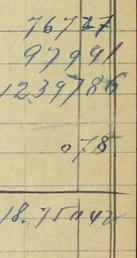 76727
97991
1239786
078
18.75042